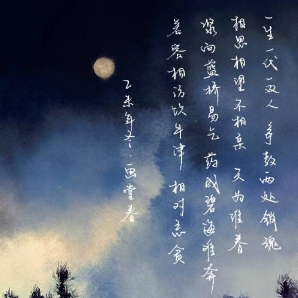 一生一代一双人 争教两处销魂
相思相望不相亲 天为谁春
浆向蓝桥易乞 药成碧海难奔
若容相访饮牛津 相对忘贫
乙未年冬·画堂春